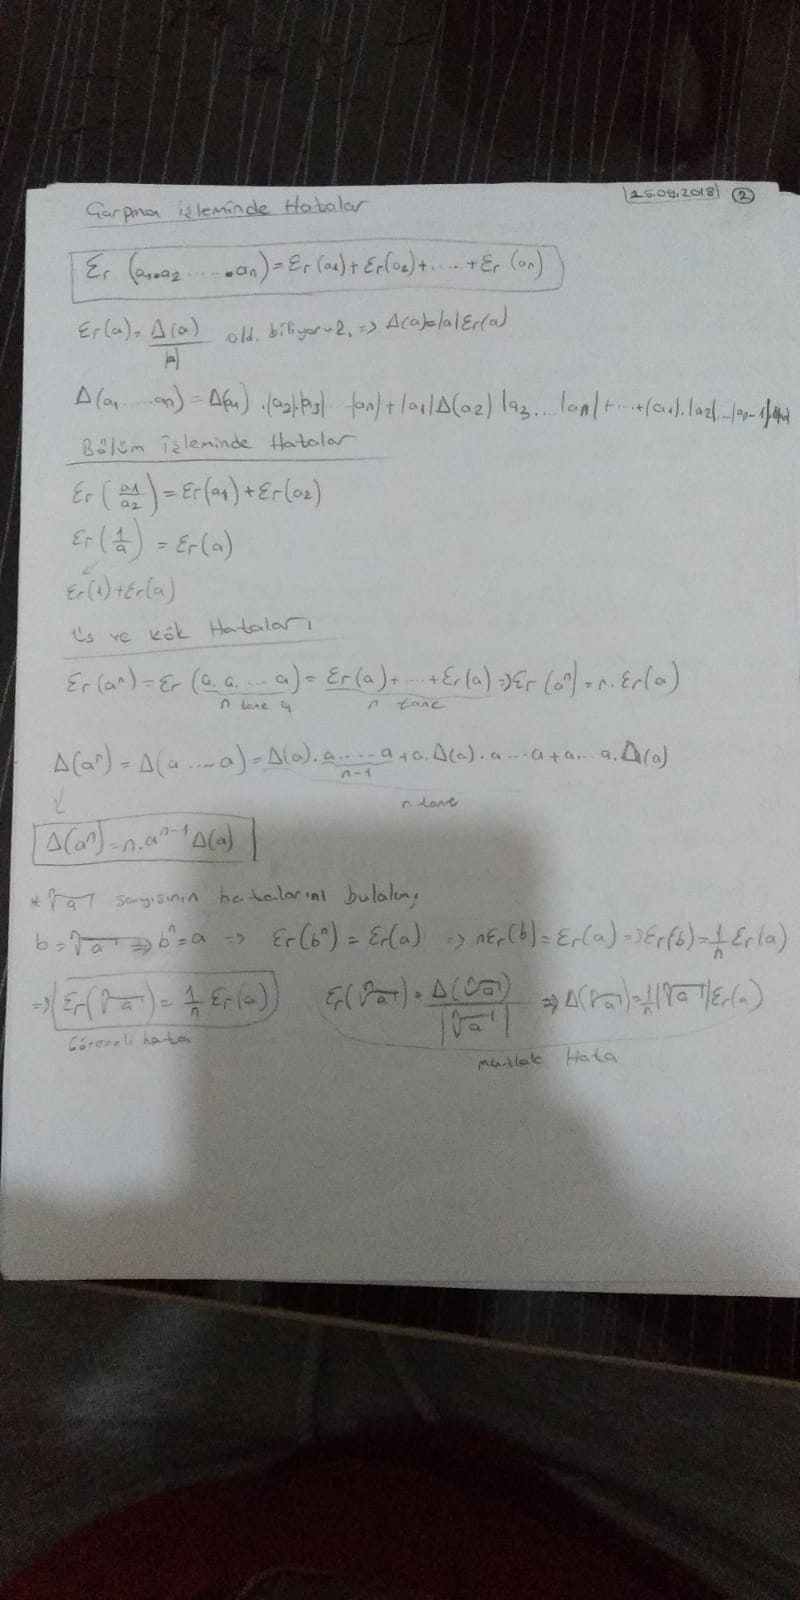 25.09.2018 2
Çarpma işleminde Hatalar
Er (a1.a2 ..... .an) = Er(a1) + Er(a2) + .... + Er (an)
Er(a) = Δ(a)/|a| old. biliyoruz, => Δ(a)=|a|Er(a)
Δ(a1 ... an) = Δ(a1) .|a2|.|a3| ... |an| + |a1|Δ(a2) |a3 ... |an| + ... + |a1|.|a2| ... |an-1|.Δ(an)
Bölüm işleminde Hatalar
Er (a1/a2) = Er(a1) + Er(a2)
Er (1/a) = Er(a)
Er(1) + Er(a)
Üs ve Kök Hataları
Er(aⁿ) = Er (a. a. ... a) = Er(a) + ... + Er(a) => Er (aⁿ) = n. Er(a)
n tane a n tane
Δ(aⁿ) = Δ(a ... a) = Δ(a). a ... a + a. Δ(a). a ... a + a ... a. Δ(a)
n-1
n tane
Δ(aⁿ) = n. aⁿ⁻¹ Δ(a)
* ⁿ√a sayısının hatalarını bulalım;
b = ⁿ√a => bⁿ = a => Er(bⁿ) = Er(a) => nEr(b) = Er(a) => Er(b) = 1/n Er(a)
=> Er(ⁿ√a) = 1/n Er(a) Er(ⁿ√a) = Δ(ⁿ√a)/|ⁿ√a| => Δ(ⁿ√a) = 1/n |ⁿ√a| Er(a)
Göreceli hata
mutlak Hata